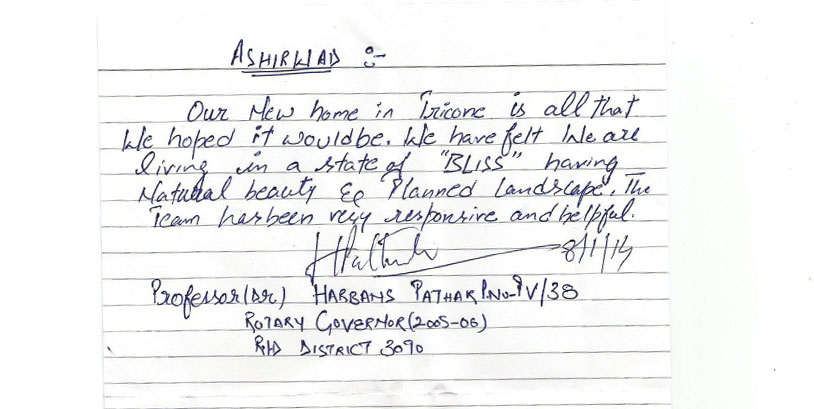 ASHIRWAD :-
Our New home in Tricone is all that
We hoped it wouldbe. We have felt We are
living in a state of "BLISS" having
Natural beauty & Planned Landscape. The
Team hasbeen very responsive and helpful.
8/1/14
Professor (Dr.) HARBANS PATHAK P.No-PV/38
ROTARY GOVERNOR (2005-06)
RID DISTRICT 3090